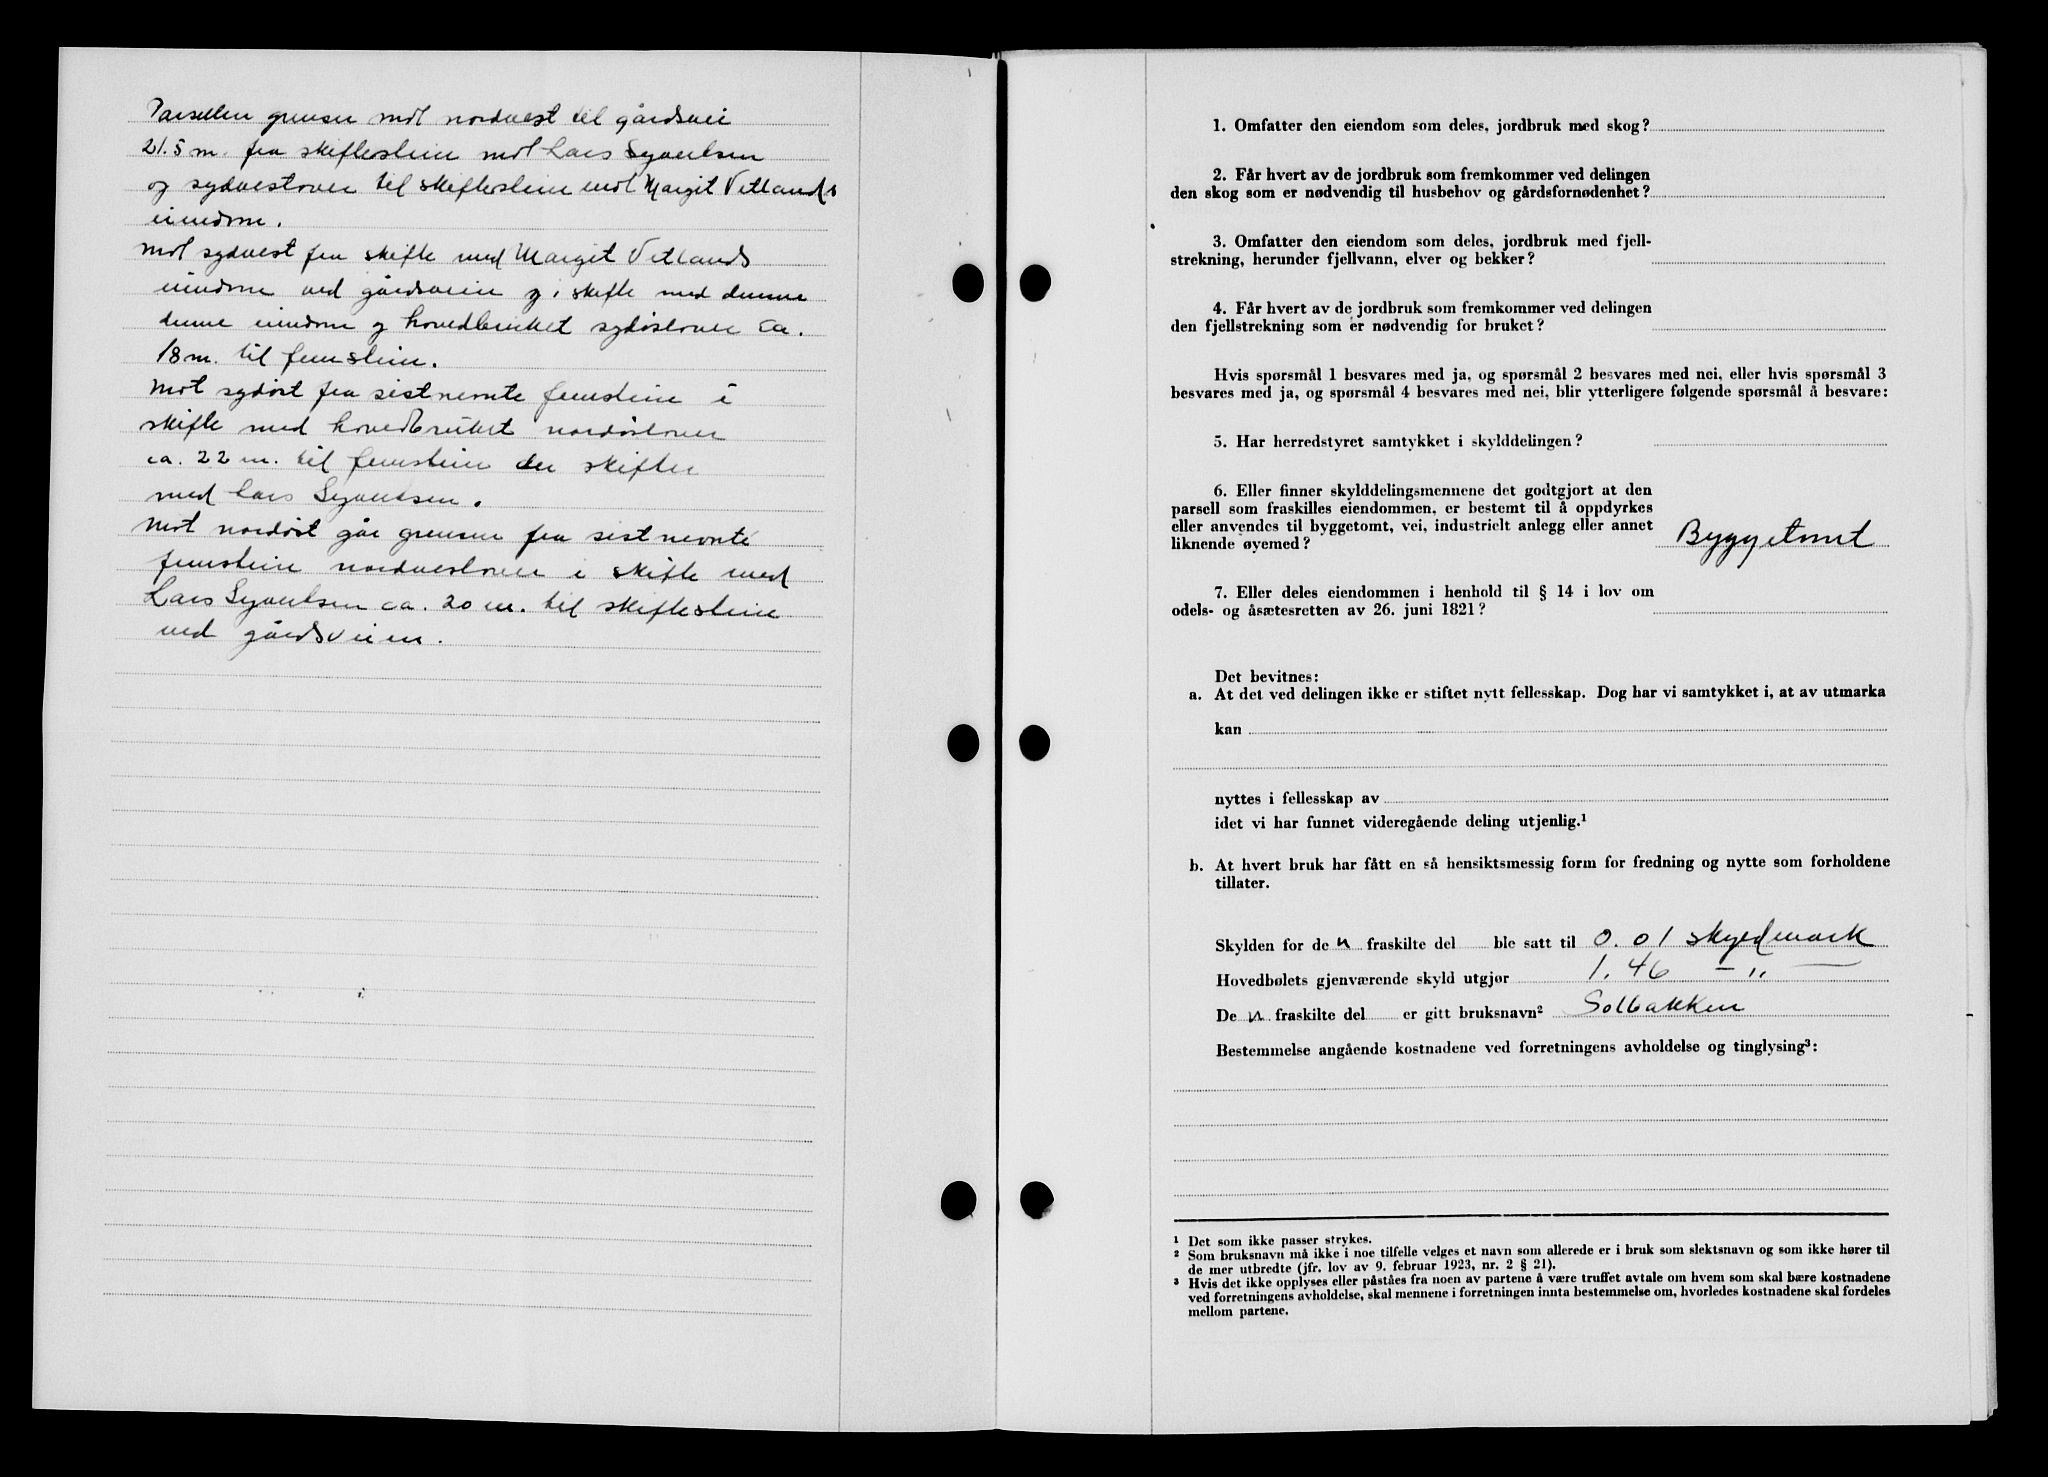 Parsellen grenser mot nordvest til gårdsvei
21.5 m. fra skiftestein mot Lars Syvertsen
og sydvestover til skiftestein mot Margit Vetlands
eiendom.
Mot sydvest fra skifte med Margit Vetlands
eiendom ved gårdsveien og i skifte med denne
denne eiendom og hovedbruket sydøstover ca.
18 m. til femstein.
Mot sydøst fra sistnevnte femstein i
skifte med hovedbruket nordøstover
ca. 22 m. til femstein der skifter
med Lars Syvertsen.
Mot nordøst går grensen fra sistnevnte
femstein nordvestover i skifte med
Lars Syvertsen ca. 20 m. til skiftestein
ved gårdsveien.
1. Omfatter den eiendom som deles, jordbruk med skog?
2. Får hvert av de jordbruk som fremkommer ved delingen
den skog som er nødvendig til husbehov og gårdsfornødenhet?
3. Omfatter den eiendom som deles, jordbruk med fjell-
strekning, herunder fjellvann, elver og bekker?
4. Får hvert av de jordbruk som fremkommer ved delingen
den fjellstrekning som er nødvendig for bruket?
Hvis spørsmål 1 besvares med ja, og spørsmål 2 besvares med nei, eller hvis spørsmål 3
besvares med ja, og spørsmål 4 besvares med nei, blir ytterligere følgende spørsmål å besvare:
5. Har herredstyret samtykket i skylddelingen?
6. Eller finner skylddelingsmennene det godtgjort at den
parsell som fraskilles eiendommen, er bestemt til å oppdyrkes
eller anvendes til byggetomt, vei, industrielt anlegg eller annet
liknende øyemed? Byggetomt
7. Eller deles eiendommen i henhold til § 14 i lov om
odels- og åsætesretten av 26. juni 1821?
Det bevitnes:
a. At det ved delingen ikke er stiftet nytt fellesskap. Dog har vi samtykket i, at av utmarka
kan
nyttes i fellesskap av
idet vi har funnet videregående deling utjenlig.¹
b. At hvert bruk har fått en så hensiktsmessig form for fredning og nytte som forholdene
tillater.
Skylden for de n fraskilte del ble satt til 0.01 skyldmark
Hovedbølets gjenværende skyld utgjør 1.46 — " —
De n fraskilte del er gitt bruksnavn² Solbakken
Bestemmelse angående kostnadene ved forretningens avholdelse og tinglysing³:
¹ Det som ikke passer strykes.
² Som bruksnavn må ikke i noe tilfelle velges et navn som allerede er i bruk som slektsnavn og som ikke hører til
de mer utbredte (jfr. lov av 9. februar 1923, nr. 2 § 21).
³ Hvis det ikke opplyses eller påståes fra noen av partene å være truffet avtale om hvem som skal bære kostnadene
ved forretningens avholdelse, skal mennene i forretningen innta bestemmelse om, hvorledes kostnadene skal fordeles
mellom partene.